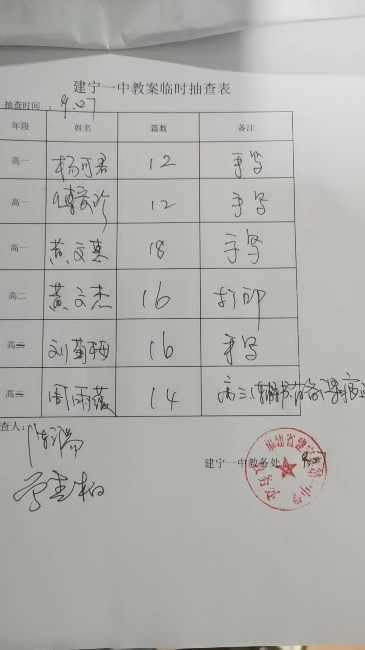 建宁一中教案临时抽查表
抽查时间：9.27
年段 姓名 篇数 备注
高一 杨可君 12 手写
高一 傅爱珍 12 手写
高一 黄文真 18 手写
高二 黄文杰 16 打印
高二 刘菊梅 16 手写
高三 周雨薇 14 高三
查人：
建宁一中教务处
福建省建宁县第一中学
教务处